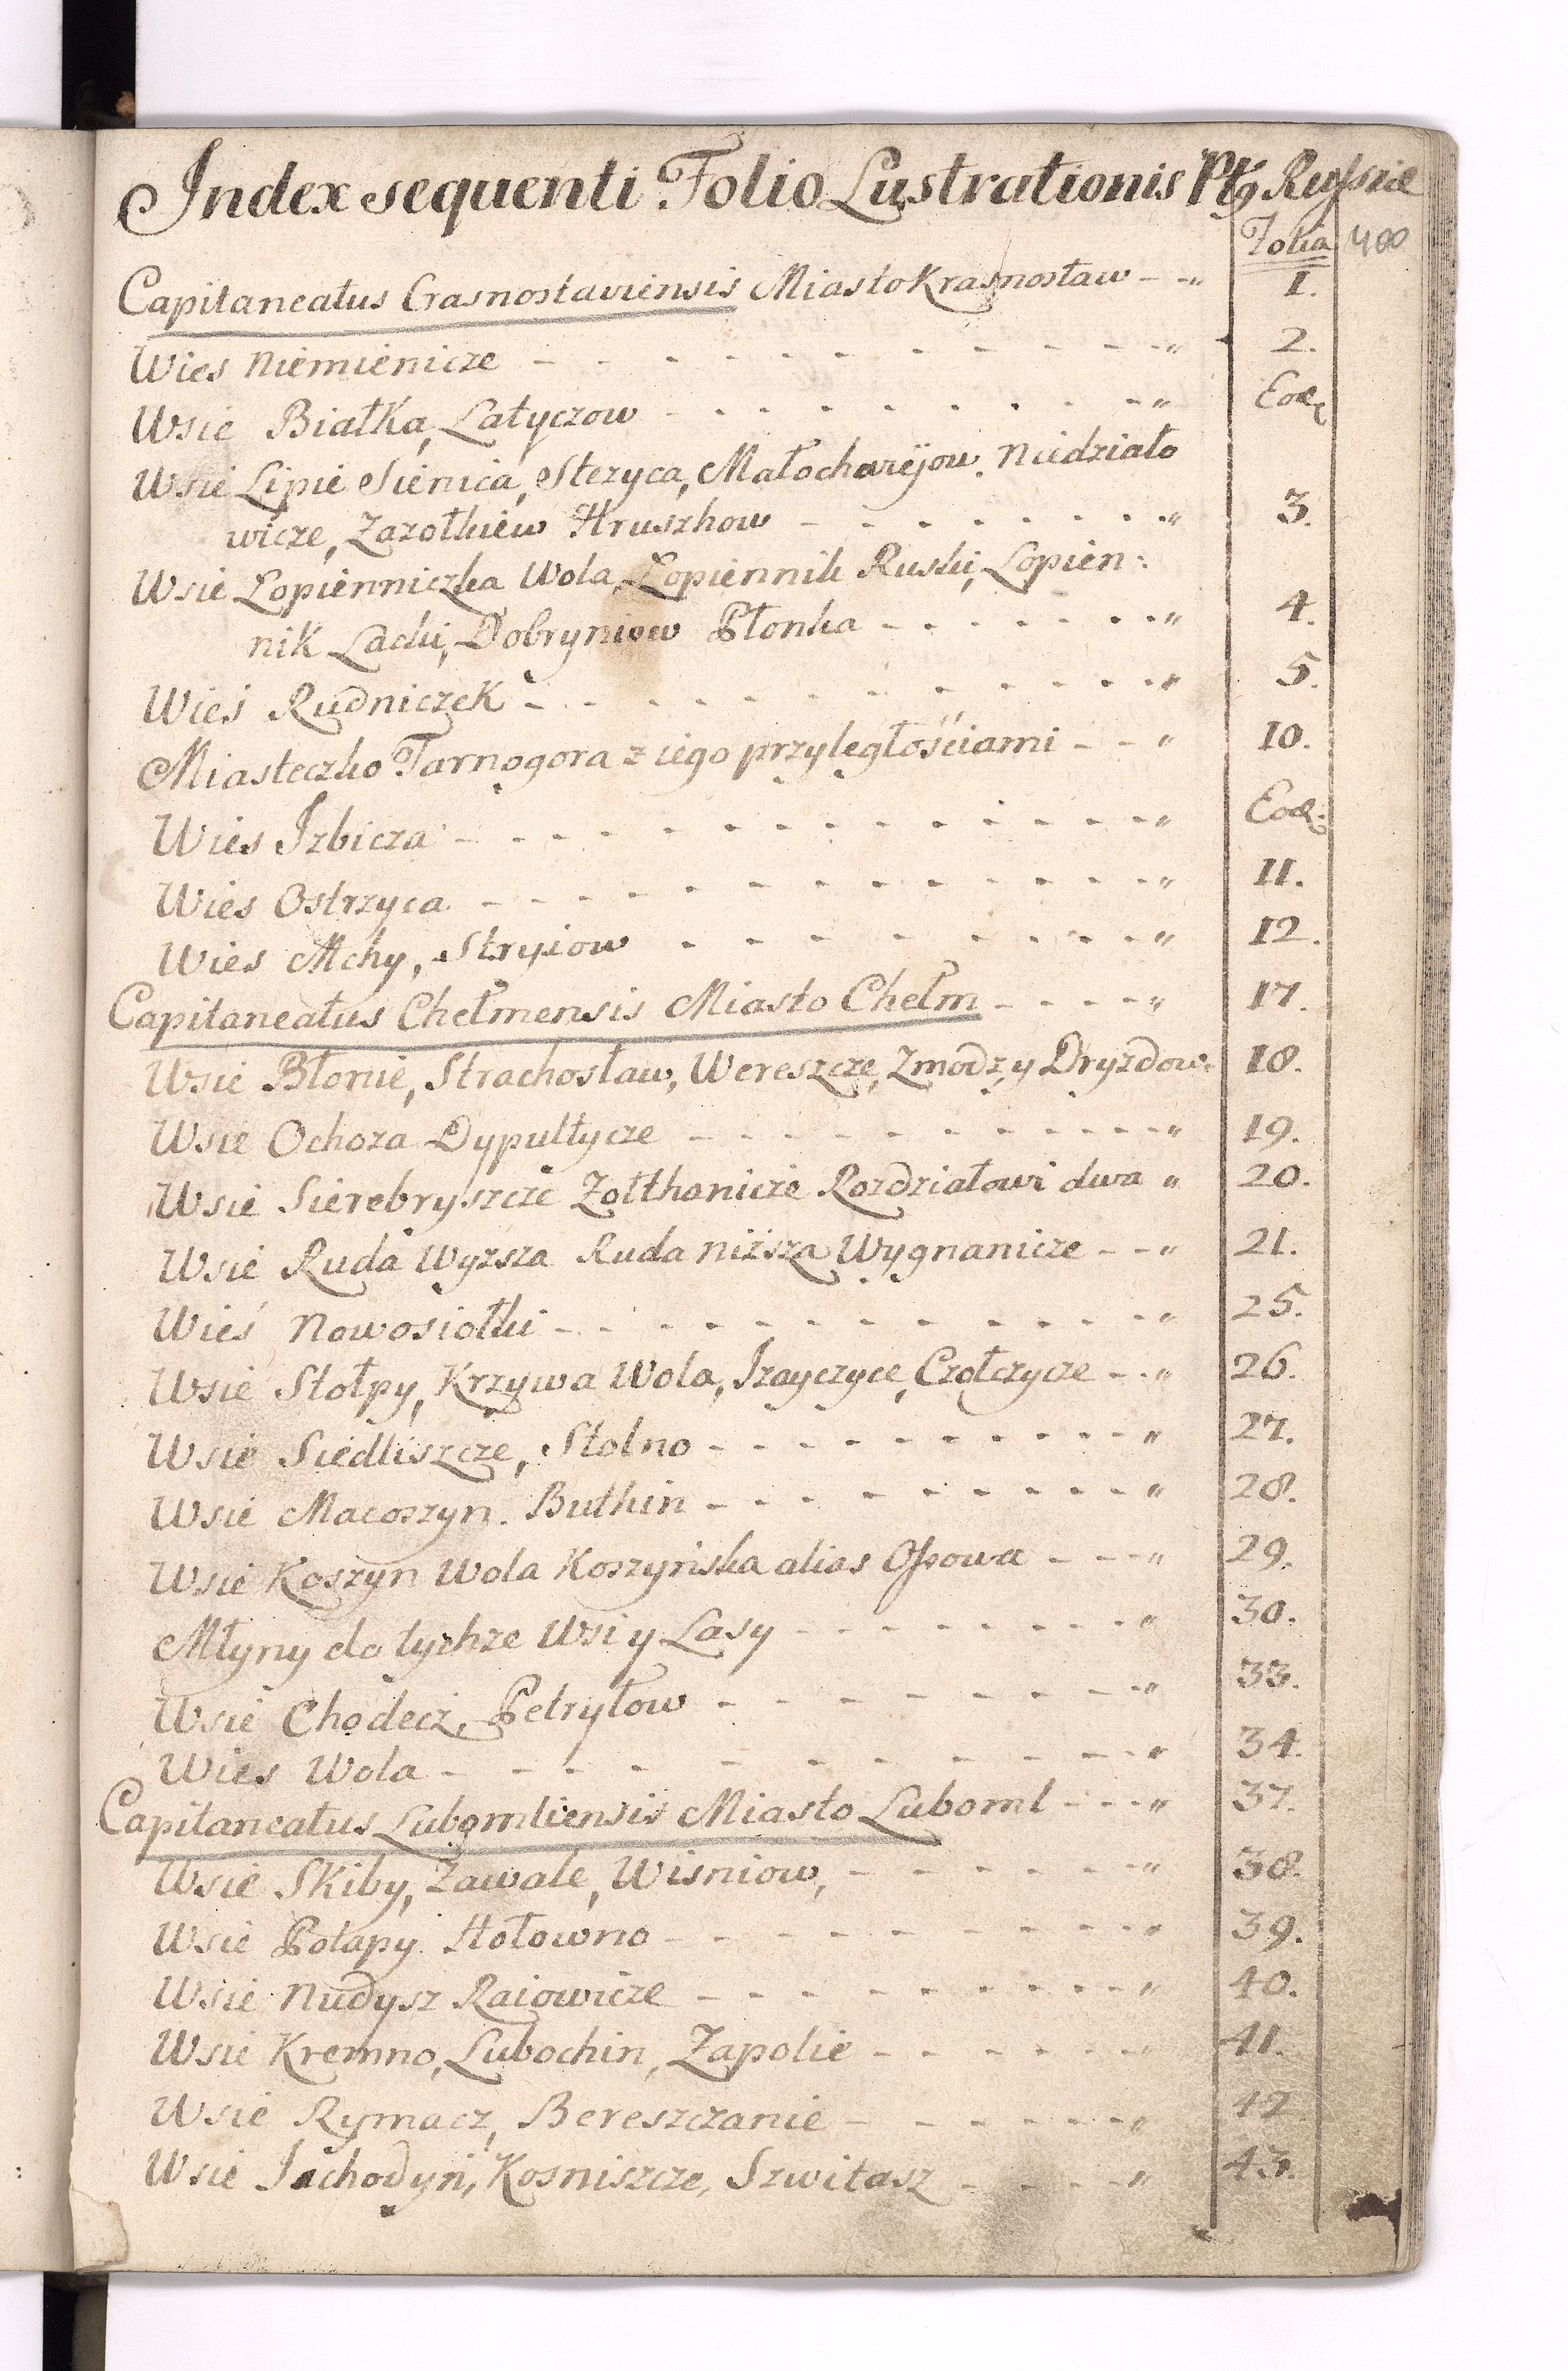 Index sequenti Folio Lustrationis Russiæ
Folia 400
Capitaneatus Crasnostaviensis Miasto Krasnostaw - - „ 1.
Wies Niemienicze - - - - - - - - - - - „ 2.
Wsie Białka, Latyczow - - - - - - - - - „ Eod.
Wsie Lipie Sienica, Stezyca, Małochwiejow. Niedziało
wicze, Zazołkiew Hruszkow - - - - - - - „ 3.
Wsie Łopienniczka Wola, Łopiennik Ruski, Lopien:
nik Lacki, Dobryniow Płonka - - - - - - „ 4.
Wieś Rudniczek - - - - - - - - - - - „ 5.
Miasteczko Tarnogora z iego przyległościami - - „ 10.
Wies Izbicza - - - - - - - - - - - - „ Eod:
Wies Ostrzyca - - - - - - - - - - - „ 11.
Wies Mchy, Stryiow - - - - - - - - „ 12.
Capitaneatus Chełmensis Miasto Chełm - - - - „ 17.
Wsie Błonie, Strachosław, Wereszcze, Zmodz, y Dryzdow. 18.
Wsie Ochoza Dypułtycze - - - - - - - - - „ 19.
Wsie Sierebryszcze Zołtkanicze Rozdziałowi dwa „ 20.
Wsie Ruda Wyzsza Ruda niższa Wygnanicze - - „ 21.
Wieś Nowosiołki - - - - - - - - - - „ 25.
Wsie Stołpy, Krzywa Wola, Izayczyce, Czołczycze - - „ 26.
Wsie Siedliszcze, Stolno - - - - - - - - „ 27.
Wsie Macoszyn. Buthin - - - - - - - - „ 28.
Wsie Koszyn Wola Koszyńska alias Ossowa - - - „ 29.
Młyny do tychze Wsi y Lasy - - - - - - - „ 30.
Wsie Chodecz, Petryłow - - - - - - - - „ 33.
Wies Wola - - - - - - - - - - - „ 34.
Capitaneatus Lubomliensis Miasto Luboml - - - „ 37.
Wsie Skiby, Zawale, Wisniow, - - - - - - „ 38.
Wsie Połapy. Hołowno - - - - - - - - „ 39.
Wsie Nudysz Raiowicze - - - - - - - - „ 40.
Wsie Kremno, Lubochin, Zapolie - - - - - „ 41.
Wsie Rymacz, Bereszczanie - - - - - - „ 42
Wsie Jachodyń, Kosniszcze, Szwitasz - - - - „ 43.